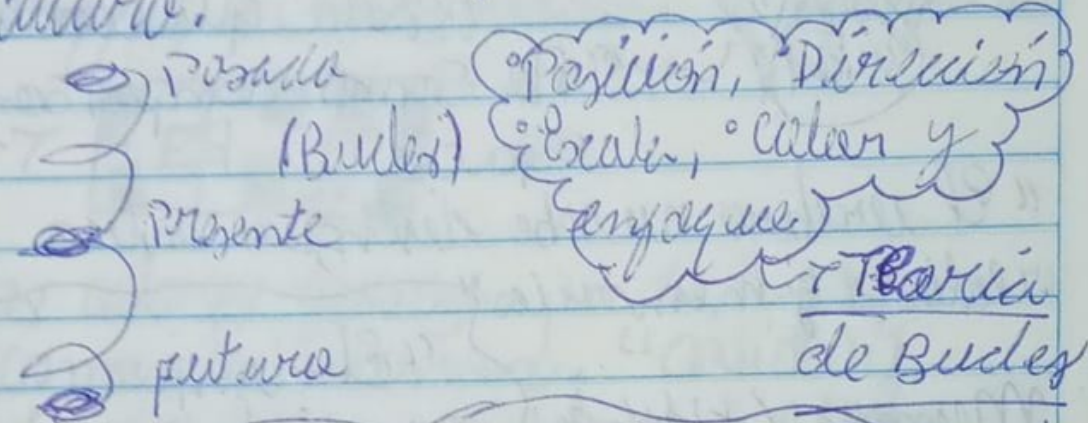 Pasado
(Bucles)
Presente
futuro
°Posición, °Dirección
°Escala, °Color y
enfoque
Teoría
de Bucles